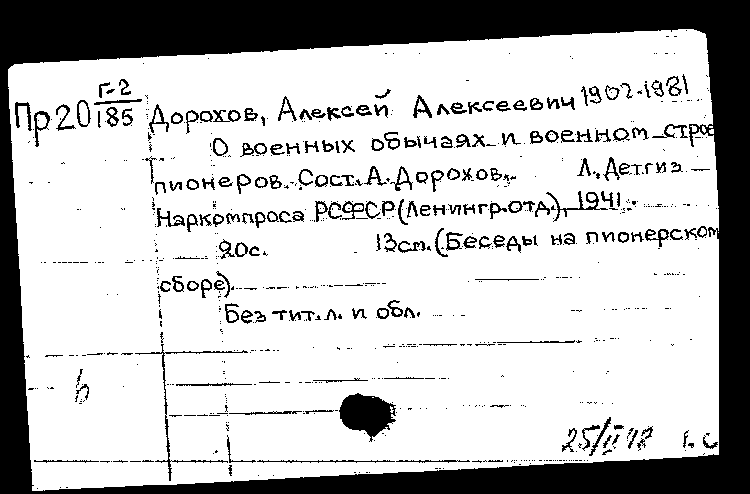 Пр20 Г-2/185 Дорохов, Алексей Алексеевич 1902-1981
О военных обычаях и военном строе
пионеров. Сост. А. Дорохов. Л, Детгиз
Наркомпроса РСФСР (Ленингр. отд.), 1941.
20с. 13см. (Беседы на пионерском
сборе).
Без тит. л. и обл.
b
25/II